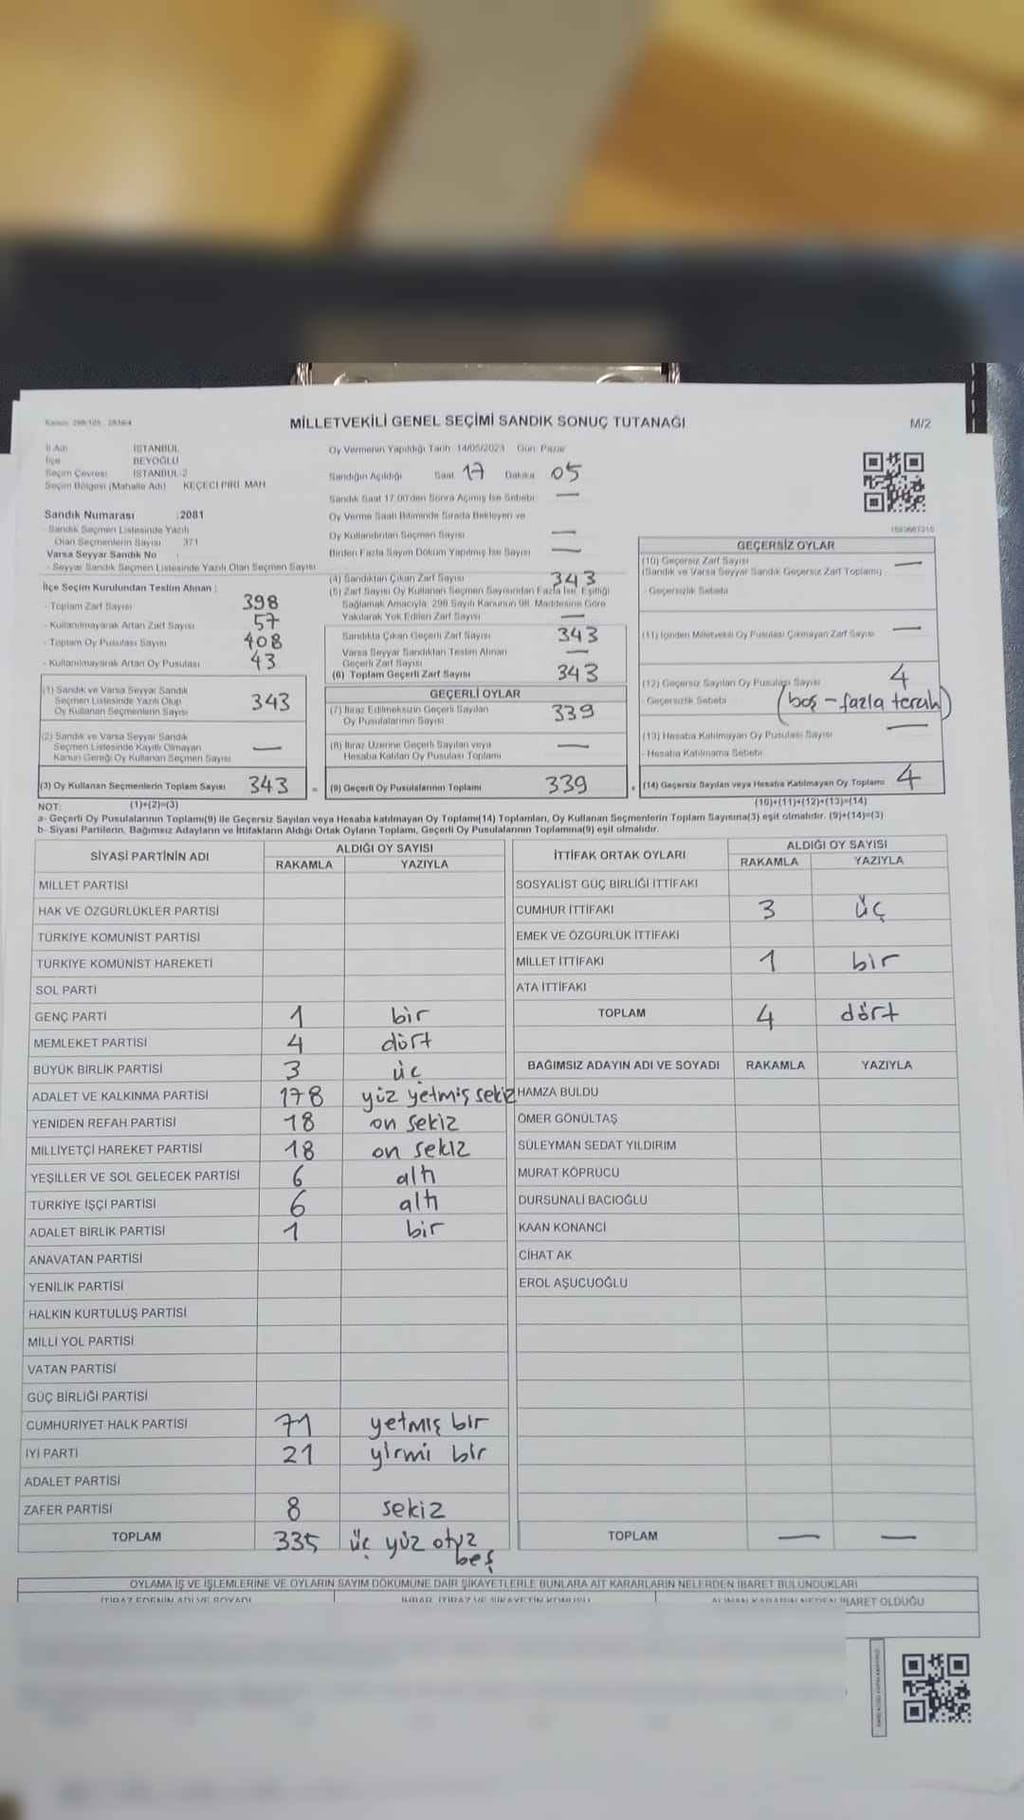 MİLLETVEKİLİ GENEL SEÇİMİ SANDIK SONUÇ TUTANAĞI
M/2
İl Adı İSTANBUL
İlçe BEYOĞLU
Seçim Çevresi İSTANBUL-2
Seçim Bölgesi (Mahalle Adı) KEÇECİ PİRİ MAH
Sandık Numarası :2081
Sandık Seçmen Listesinde Yazılı
Olan Seçmenlerin Sayısı 371
Varsa Seyyar Sandık No
- Seyyar Sandık Seçmen Listesinde Yazılı Olan Seçmen Sayısı
Oy Vermenin Yapıldığı Tarih 14/05/2023 Gün Pazar
Sandığın Açıldığı Saat 17 Dakika 05
Sandık Saat 17.00'den Sonra Açılmış İse Sebebi —
Oy Verme Saati Bitiminde Sırada Bekleyen ve
Oy Kullandırılan Seçmen Sayısı —
Birden Fazla Sayım Döküm Yapılmış İse Sayısı —
İlçe Seçim Kurulundan Teslim Alınan :
- Toplam Zarf Sayısı 398
- Kullanılmayarak Artan Zarf Sayısı 57
- Toplam Oy Pusulası Sayısı 408
- Kullanılmayarak Artan Oy Pusulası 43
(1) Sandık ve Varsa Seyyar Sandık
Seçmen Listesinde Yazılı Olup
Oy Kullanan Seçmenlerin Sayısı 343
(2) Sandık ve Varsa Seyyar Sandık
Seçmen Listesinde Kayıtlı Olmayan
Kanun Gereği Oy Kullanan Seçmen Sayısı —
(3) Oy Kullanan Seçmenlerin Toplam Sayısı 343
(4) Sandıktan Çıkan Zarf Sayısı 343
(5) Zarf Sayısı Oy Kullanan Seçmen Sayısından Fazla İse, Eşitliği
Sağlamak Amacıyla, 298 Sayılı Kanunun 98. Maddesine Göre
Yakılarak Yok Edilen Zarf Sayısı —
Sandıkta Çıkan Geçerli Zarf Sayısı 343
Varsa Seyyar Sandıktan Teslim Alınan
Geçerli Zarf Sayısı —
(6) Toplam Geçerli Zarf Sayısı 343
GEÇERLİ OYLAR
(7) İtiraz Edilmeksizin Geçerli Sayılan
Oy Pusulalarının Sayısı 339
(8) İtiraz Üzerine Geçerli Sayılan veya
Hesaba Katılan Oy Pusulası Toplamı —
(9) Geçerli Oy Pusulalarının Toplamı 339
GEÇERSİZ OYLAR
(10) Geçersiz Zarf Sayısı —
(Sandık ve Varsa Seyyar Sandık Geçersiz Zarf Toplamı)
- Geçersizlik Sebebi
(11) İçinden Milletvekili Oy Pusulası Çıkmayan Zarf Sayısı —
(12) Geçersiz Sayılan Oy Pusulası Sayısı 4
- Geçersizlik Sebebi (boş - fazla tercih)
(13) Hesaba Katılmayan Oy Pusulası Sayısı —
- Hesaba Katılmama Sebebi
(14) Geçersiz Sayılan veya Hesaba Katılmayan Oy Toplamı 4
NOT: (1)+(2)=(3) (10)+(11)+(12)+(13)=(14)
a- Geçerli Oy Pusulalarının Toplamı(9) ile Geçersiz Sayılan veya Hesaba katılmayan Oy Toplamı(14) Toplamları, Oy Kullanan Seçmenlerin Toplam Sayısına(3) eşit olmalıdır. (9)+(14)=(3)
b- Siyasi Partilerin, Bağımsız Adayların ve İttifakların Aldığı Ortak Oyların Toplamı, Geçerli Oy Pusulalarının Toplamına(9) eşit olmalıdır.
SİYASİ PARTİNİN ADI ALDIĞI OY SAYISI
RAKAMLA YAZIYLA
MİLLET PARTİSİ
HAK VE ÖZGÜRLÜKLER PARTİSİ
TÜRKİYE KOMÜNİST PARTİSİ
TÜRKİYE KOMÜNİST HAREKETİ
SOL PARTİ
GENÇ PARTİ 1 bir
MEMLEKET PARTİSİ 4 dört
BÜYÜK BİRLİK PARTİSİ 3 üç
ADALET VE KALKINMA PARTİSİ 178 yüz yetmiş sekiz
YENİDEN REFAH PARTİSİ 18 on sekiz
MİLLİYETÇİ HAREKET PARTİSİ 18 on sekiz
YEŞİLLER VE SOL GELECEK PARTİSİ 6 altı
TÜRKİYE İŞÇİ PARTİSİ 6 altı
ADALET BİRLİK PARTİSİ 1 bir
ANAVATAN PARTİSİ
YENİLİK PARTİSİ
HALKIN KURTULUŞ PARTİSİ
MİLLİ YOL PARTİSİ
VATAN PARTİSİ
GÜÇ BİRLİĞİ PARTİSİ
CUMHURİYET HALK PARTİSİ 71 yetmiş bir
İYİ PARTİ 21 yirmi bir
ADALET PARTİSİ
ZAFER PARTİSİ 8 sekiz
TOPLAM 335 üç yüz otuz
beş
İTTİFAK ORTAK OYLARI ALDIĞI OY SAYISI
RAKAMLA YAZIYLA
SOSYALİST GÜÇ BİRLİĞİ İTTİFAKI
CUMHUR İTTİFAKI 3 üç
EMEK VE ÖZGÜRLÜK İTTİFAKI
MİLLET İTTİFAKI 1 bir
ATA İTTİFAKI
TOPLAM 4 dört
BAĞIMSIZ ADAYIN ADI VE SOYADI RAKAMLA YAZIYLA
HAMZA BULDU
ÖMER GÖNÜLTAŞ
SÜLEYMAN SEDAT YILDIRIM
MURAT KÖPRÜCÜ
DURSUNALİ BACIOĞLU
KAAN KONANCİ
CİHAT AK
EROL AŞUCUOĞLU
TOPLAM — —
OYLAMA İŞ VE İŞLEMLERİNE VE OYLARIN SAYIM DÖKÜMÜNE DAİR ŞİKAYETLERLE BUNLARA AİT KARARLARIN NELERDEN İBARET BULUNDUKLARI
İTİRAZ EDENİN ADI VE SOYADI İHBAR, İTİRAZ VE ŞİKAYETİN KONUSU ALINAN KARARIN NEDEN İBARET OLDUĞU